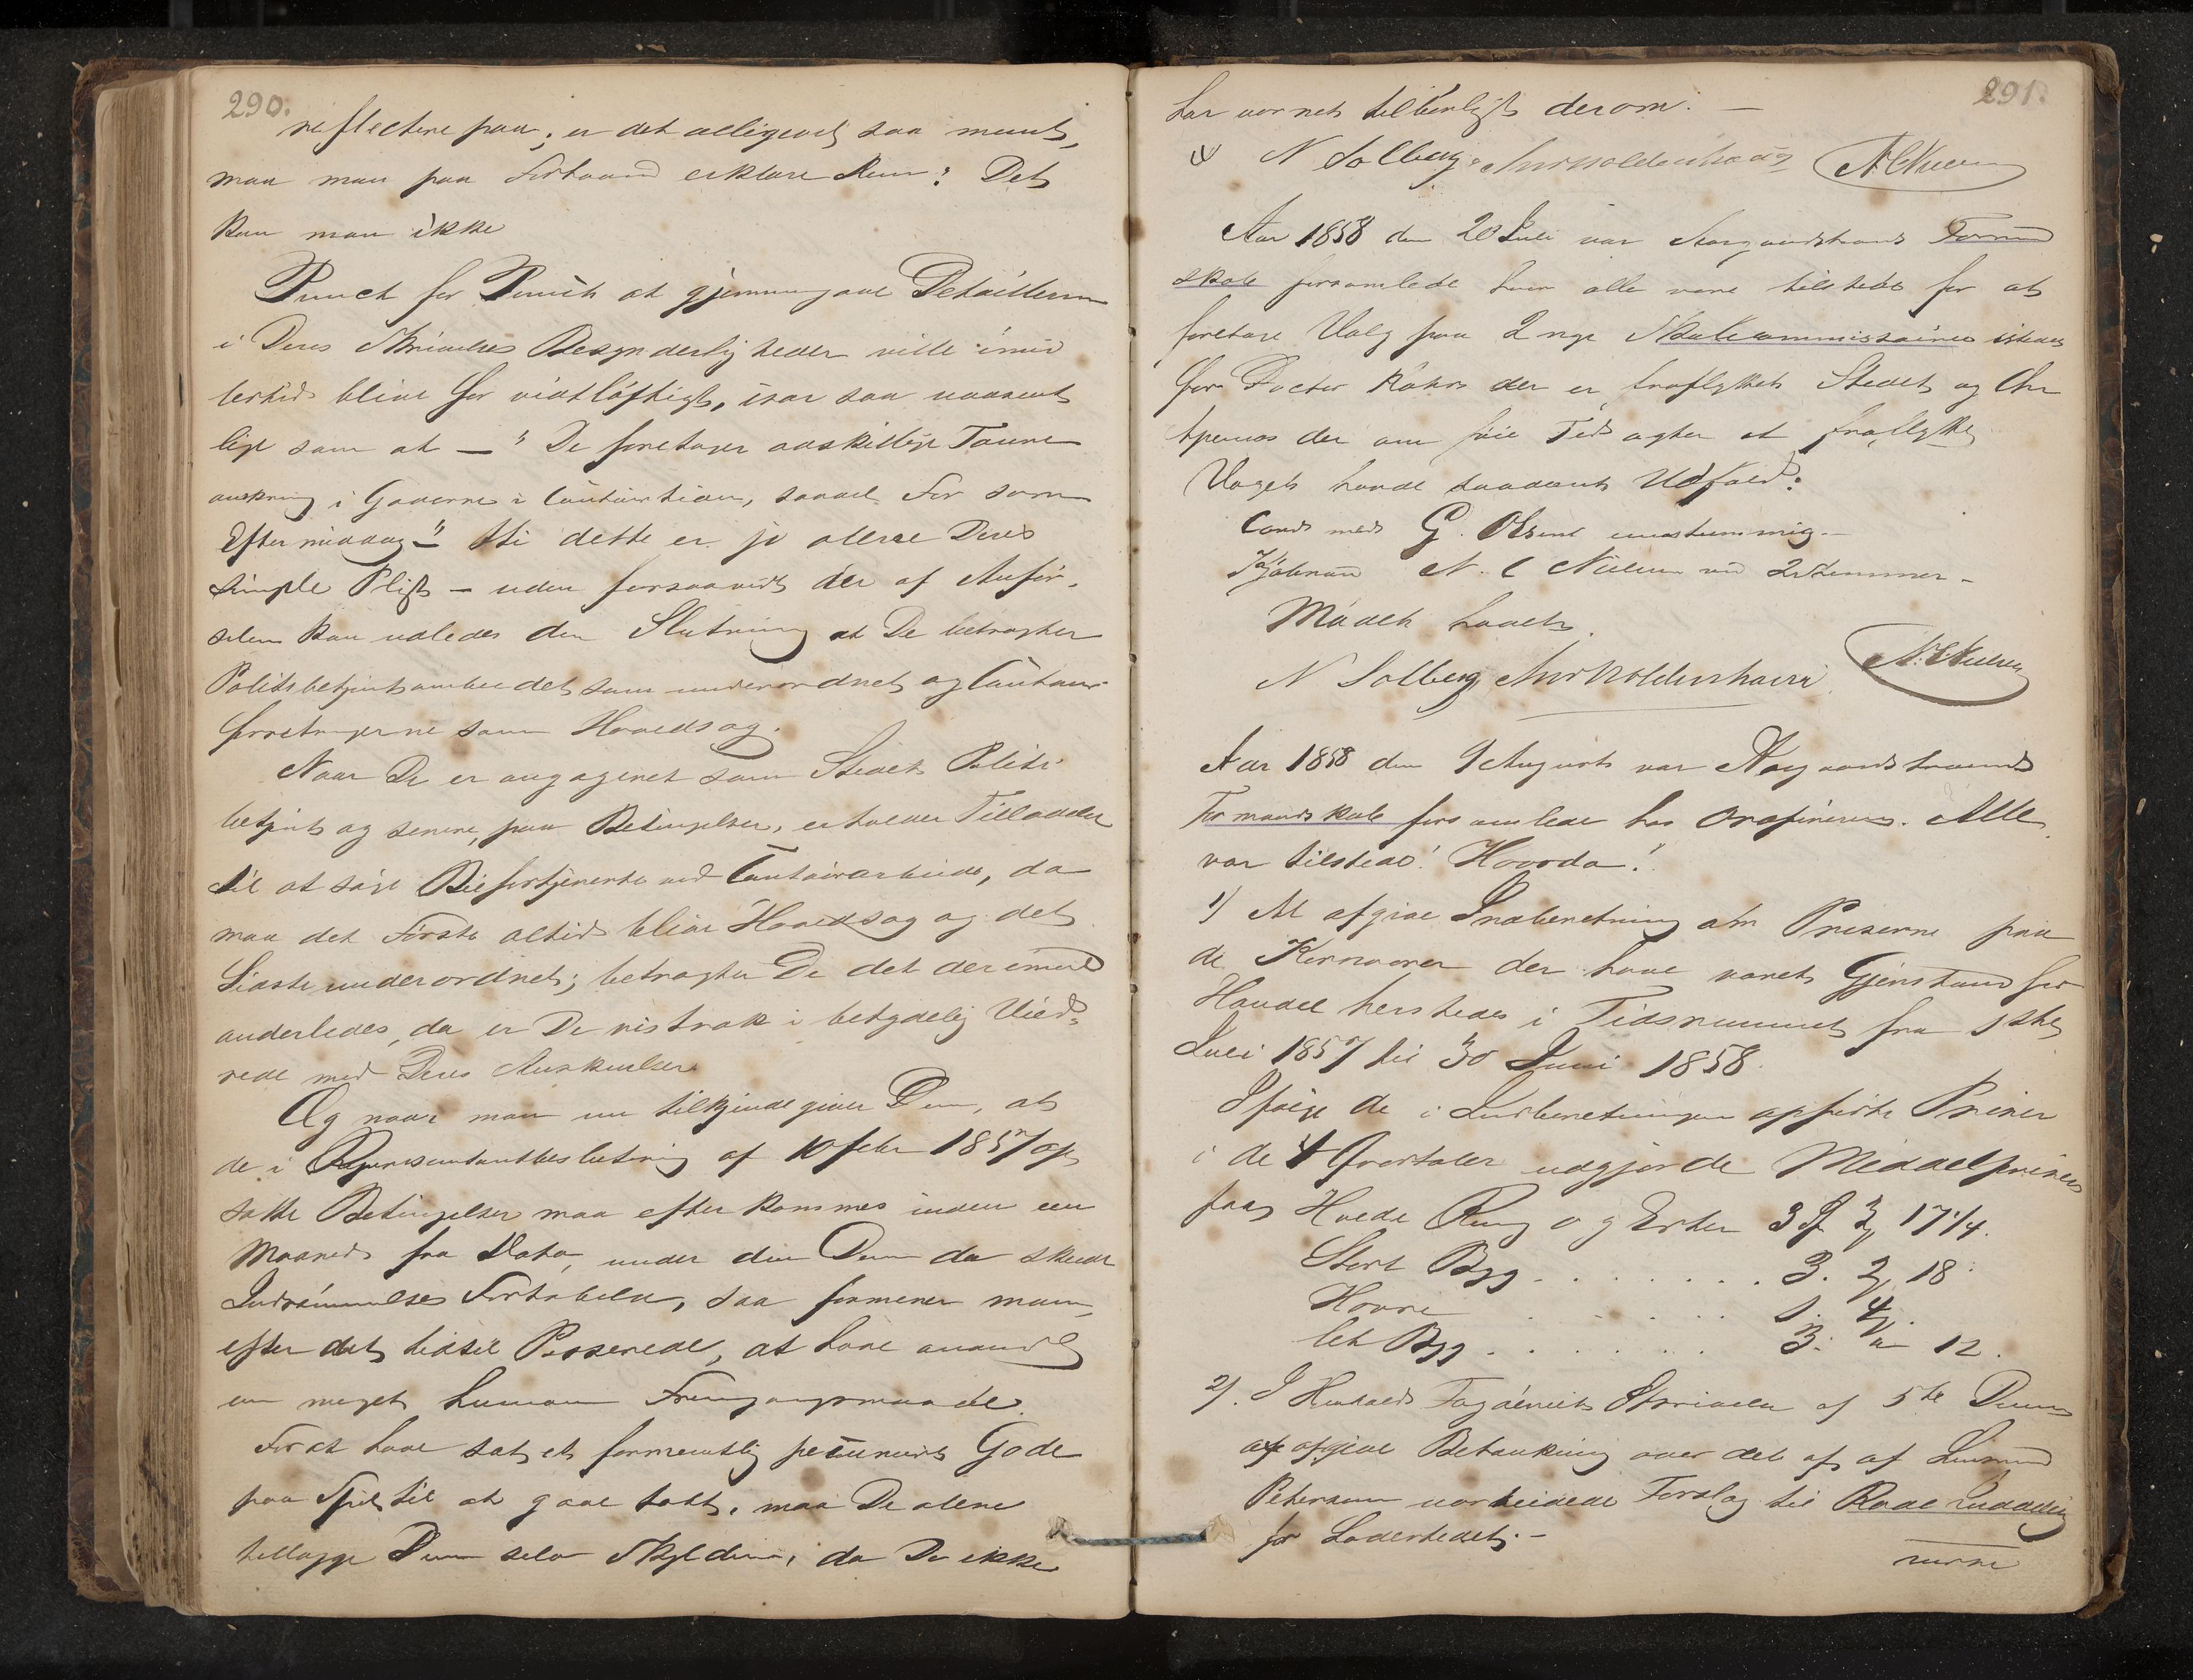 290.
reflectere paa; er det alligevel saa meent,
maa man paa Forhaand erklære Dem: Det
kan man ikke
Punct for Punct at gjennemgaae Detaillerne
i Deres Skrivelses Besynderligheder vilde imid
lertid blive for vidtløftigt, især saa uvæsent
lige som at — "De foretager adskillige Toure
i Gaderne i Contoirtiden, saavel For som
Eftermiddag" — thi dette er jo allene Deres
simple Pligt — uden forsaavidt der af Anfør,
selen kan udledes den Slutning at De betragter
Politibetjentembedet som underordnet og Contoir
forretningerne som Hovedsag.
Naar De er engageret som Stedets Politi
betjent og senere, paa Betingelser, erholder Tilladelse
til at søge Bifortjeneste ved Contoirarbeide, da
maa det Første altid blive Hovedsag og det
Sidste underordnet; betragter De det derimod
anderledes, da er De nistrak i betydelig Vild,
rede med Deres Anskuelser
Og naar man nu tilkjendegiver Dem, at
de i Repræsentantbeslutning af 10 febr 1857 op,
satte Betingelser maa efterkommes inden een
Maaned fra Dato, under den Dem da skeede
Indrømmelses Fortabelse, saa formener man,
efter det hidtil Passerede, at have anvendt
en meget human Fremgangsmaade.
For at have sat et formentlig pecuniært Gode
paa Spil til at gaae tabt, maa De alene
tillægge Dem selv Skylden, da De ikke
291.
har været tilbørligt derom. —
N Solberg A C Nielsen
Aar 1858 den 20 Juli var Aasgaardstrands Formand
skab forsamlede hvor alle vare tilstede for at
foretage Valg paa 2 nye Skolecommissairer istedet
for Doctor der er fraflyttet Stedet og Chr
der om føie Tid agter at fraflytte
Valget havde saadant Udfald:
Cand med G. Olsen eenstemmig —
Kjøbmand N. C Nielsen ved 2 Stemmer —
Mødet hævet.
N Solberg N. C Nielsen
Aar 1858 den 9 August var Aasgaardstrands
Formandskab forsamlede hos Ordføreren. Alle
var tilstede! Hvorda!
1) At afgive Indberetning om Priserne paa
de Kornvarer der have været Gjenstand for
Handel herstedes i Tidsrummet fra 1ste
Juli 1857 til 30 Juni 1858.
Ifølge de i Indberetningen opførte Priser
i de 4 Qvartaler udgjorde Middelprisen
paa Hvede Rug og Erter 3 17 1/4.
Stort Byg . . . . . . . 3. 2 18
Havre . . . . . . 1. 4
let Byg . . . . . . 3. " 12.
2). I Henhold Fogderiets Skrivelse af 5te Dennes
at afgive Betænkning over det af af Lensmand
Petersen udarbeidede Forslag til Rode Inddeling
for Ladestedet. —